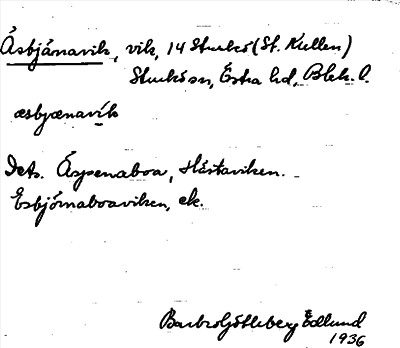 Åsbjörnavik, vik, 14 Sturkö (St. Kullen)
Sturkö sn, Östra hd, Blek. l.
æsbjænavík
Dets. Äspenaboa, Hästaviken.
Esbjörnaboaviken, ek.
Barbro Götleberg Edlund
1936